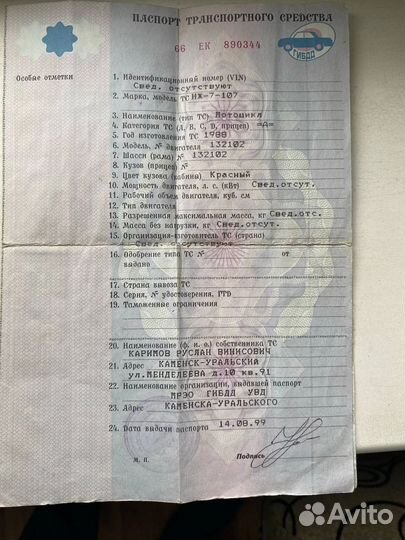 ПАСПОРТ ТРАНСПОРТНОГО СРЕДСТВА
66 ЕК 890344
ГИБДД
Особые отметки
1. Идентификационный номер (VIN)
Свед. отсутствуют
2. Марка, модель ТС ИЖ-7-107
3. Наименование (тип ТС) Мотоцикл
4. Категория ТС (А, В, С, D, прицеп) =А=
5. Год изготовления ТС 1988
6. Модель, № двигателя 132102
7. Шасси (рама) № 132102
8. Кузов (прицеп) №
9. Цвет кузова (кабины) Красный
10. Мощность двигателя, л. с. (кВт) Свед.отсут.
11. Рабочий объем двигателя, куб. см
12. Тип двигателя
13. Разрешенная максимальная масса, кг Свед.отс.
14. Масса без нагрузки, кг Свед.отсут.
15. Организация-изготовитель ТС (страна)
Свед. отсутствуют
16. Одобрение типа ТС № от
выдано
17. Страна вывоза ТС
18. Серия, № удостоверения, ГТD
19. Таможенные ограничения
20. Наименование (ф. и. о.) собственника ТС
КАРИМОВ РУСЛАН ВИНИСОВИЧ
21. Адрес КАМЕНСК-УРАЛЬСКИЙ
ул.МЕНДЕЛЕЕВА д.10 кв.91
22. Наименование организации, выдавшей паспорт
МРЭО ГИБДД УВД
23. Адрес КАМЕНСКА-УРАЛЬСКОГО
24. Дата выдачи паспорта 14.08.99
М. П. Подпись
Avito